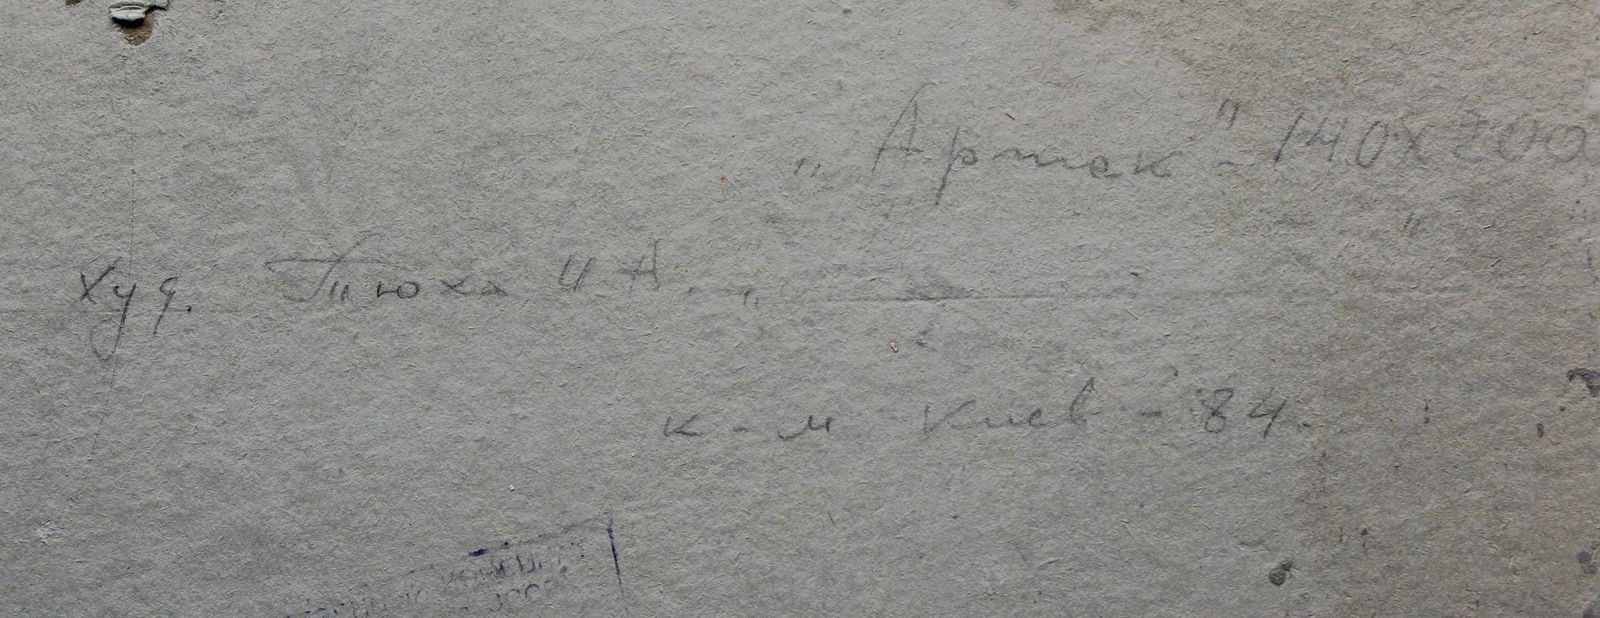 „Артак" - 140х200
худ. Тюха И.А. - „
к-м Киев - 84